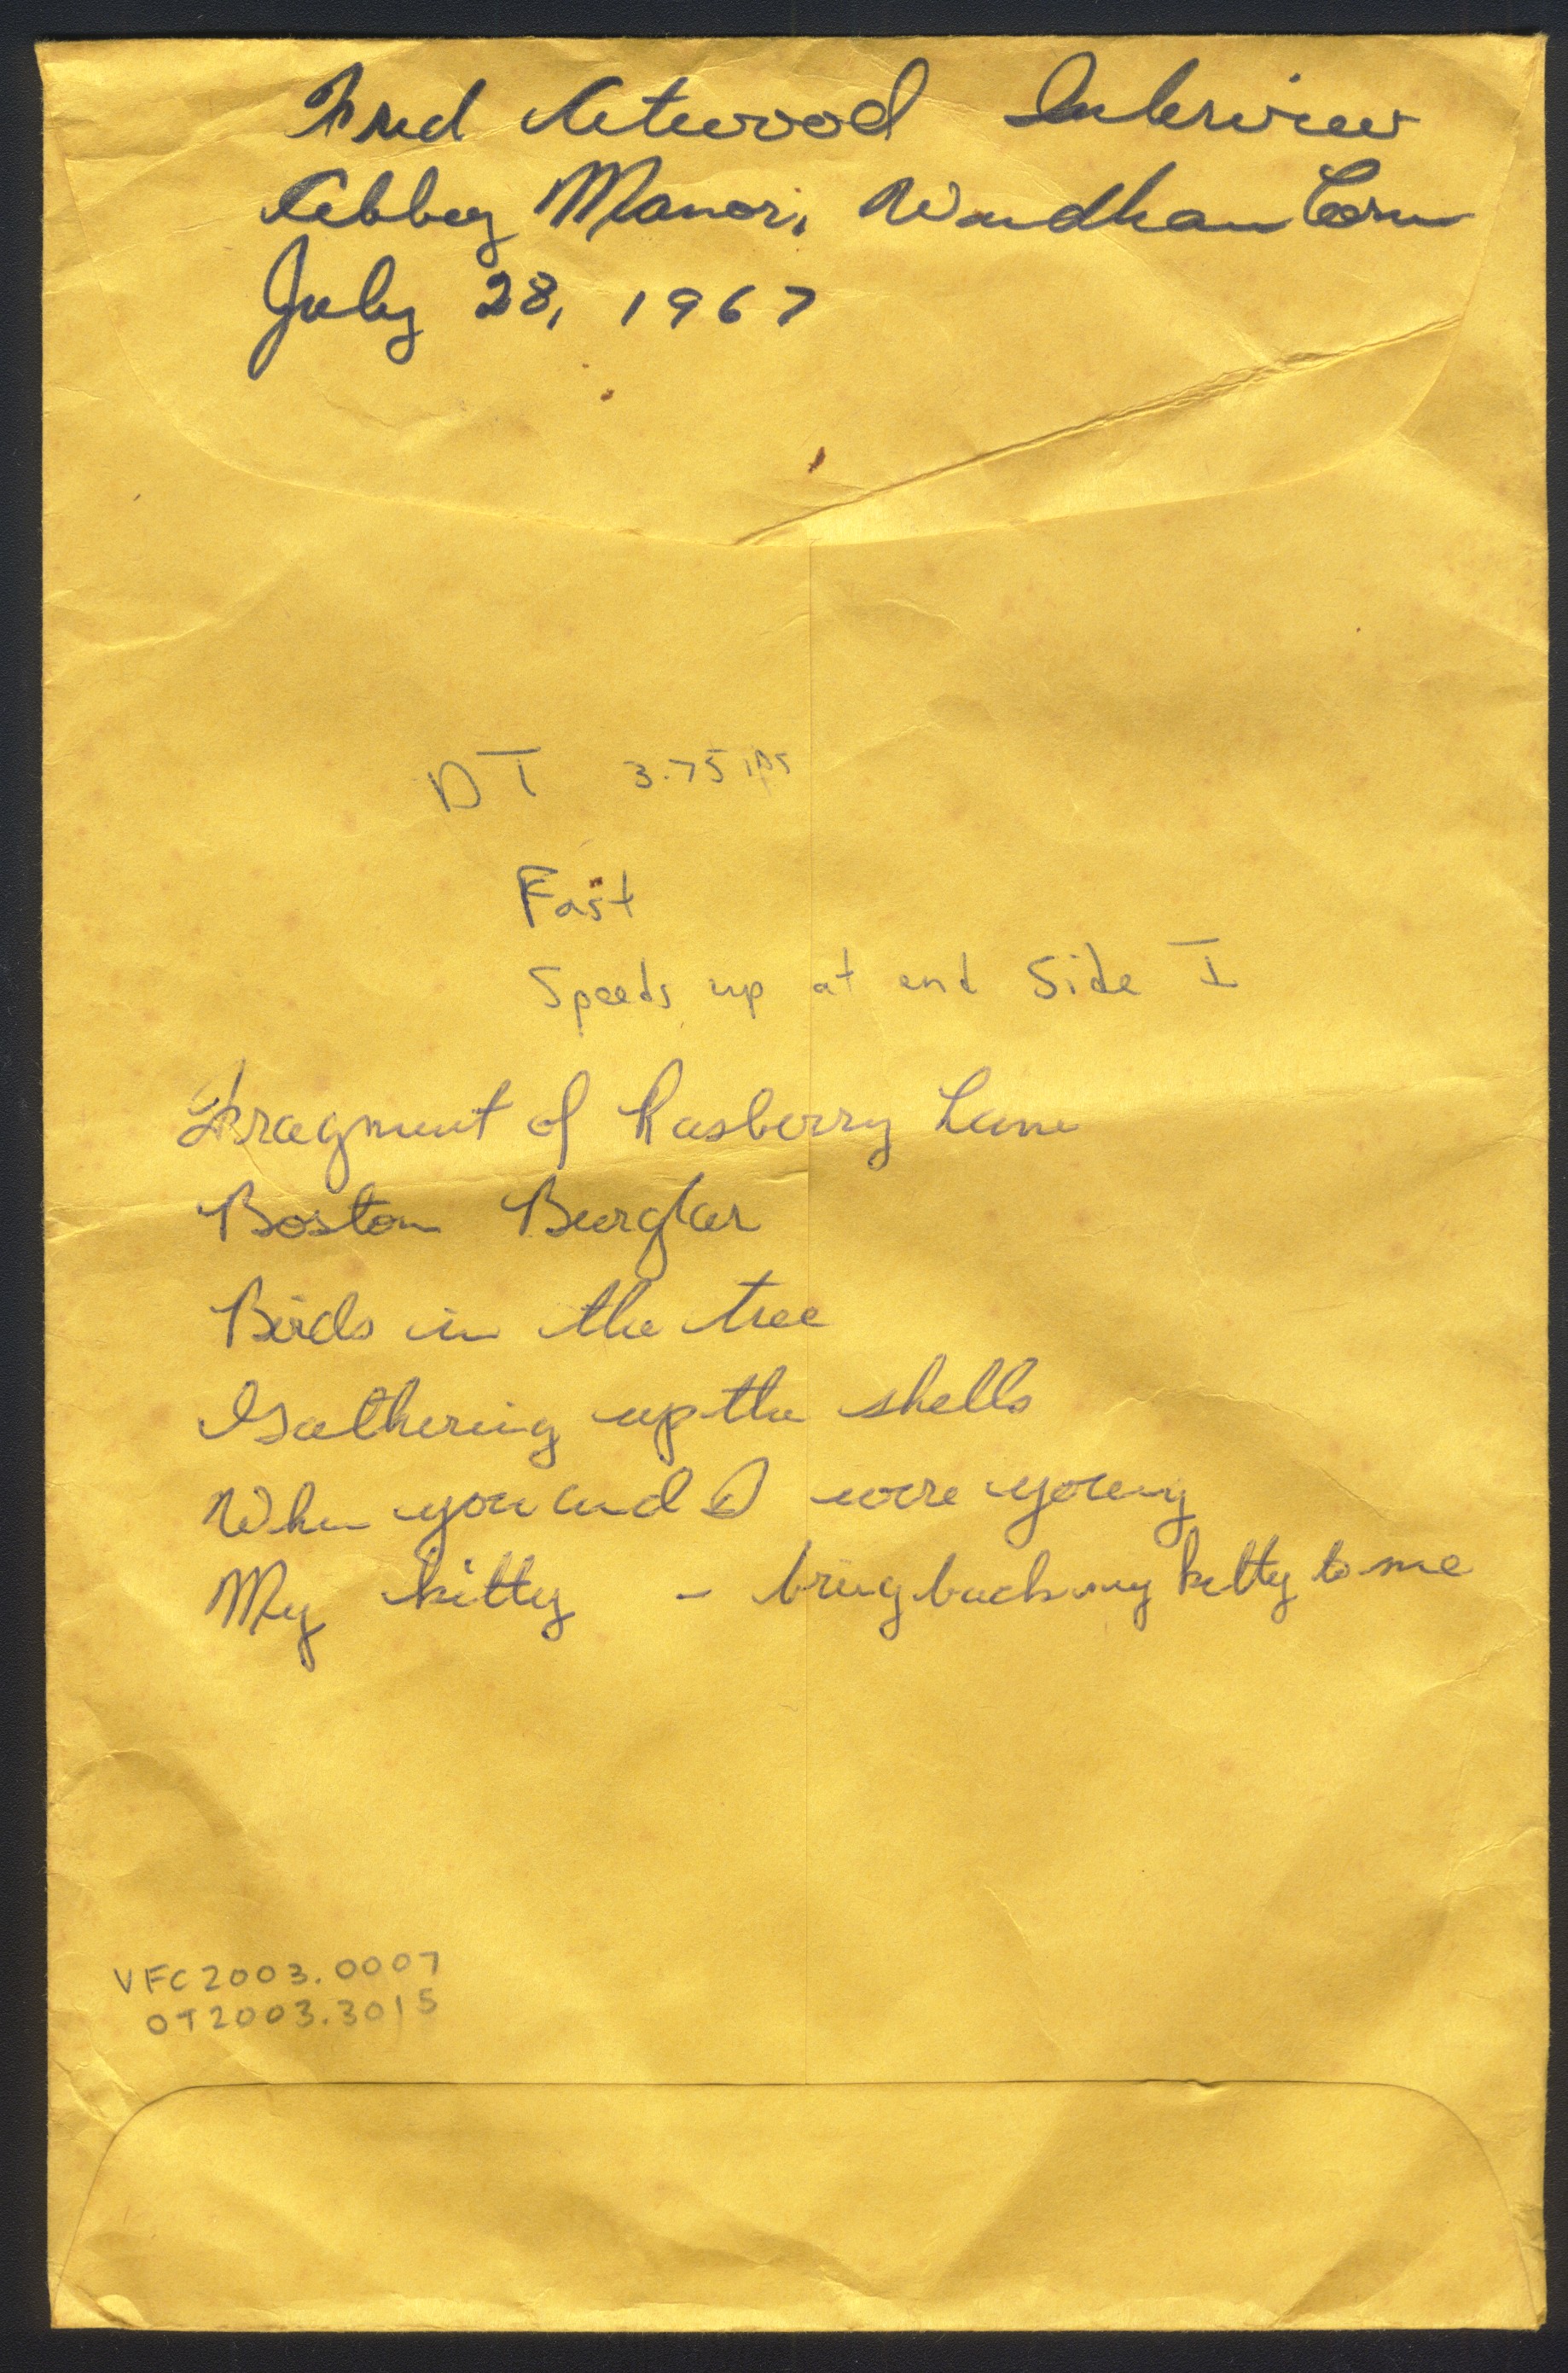 Fred Atwood Interview
Abbey Manor, Windham Conn
July 28, 1967
DT 3.75 ips
Fast
Speeds up at end Side I
Fragment of Rasberry Lane
Boston Burglar
Birds in the tree
Gathering up the shells
When you and I were young
My kitty - bring back my kitty to me
VFC2003.0007
OT2003.3015